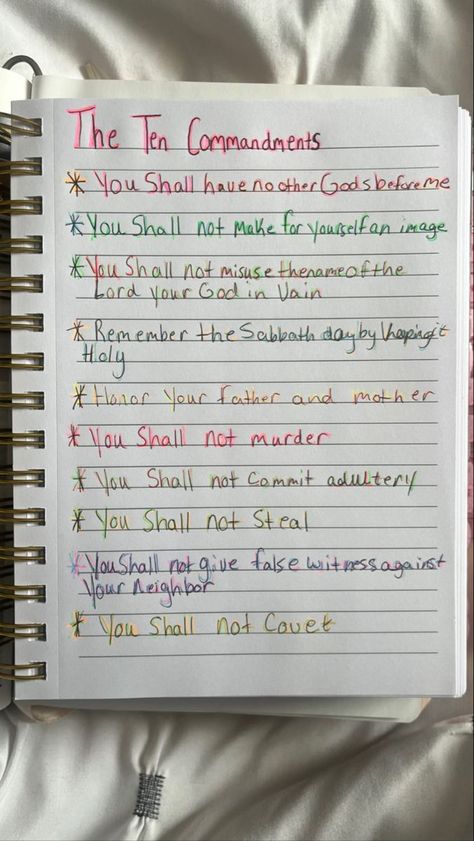 The Ten Commandments
* You Shall have no other Gods before me
* You Shall not Make for yourself an image
* You Shall not misuse the name of the
Lord your God in Vain
* Remember the Sabbath day by Keeping it
Holy
* Honor Your father and mother
* You Shall not murder
* You Shall not Commit adultery
* You Shall not Steal
* You Shall not give false witness against
Your Neighbor
* You Shall not Covet